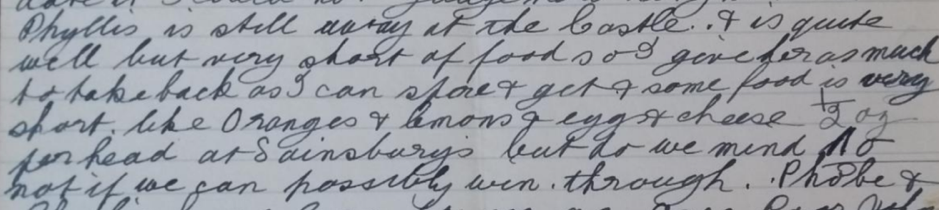 Phyllis is still away at the Castle. & is quite
well but very short of food so I give her as much
to take back as I can spare & get & some food is very
short. like Oranges & lemons & eggs & cheese ½ oz
per head at Sainsburys but do we mind No
not if we can possibly win. through. Phobe &